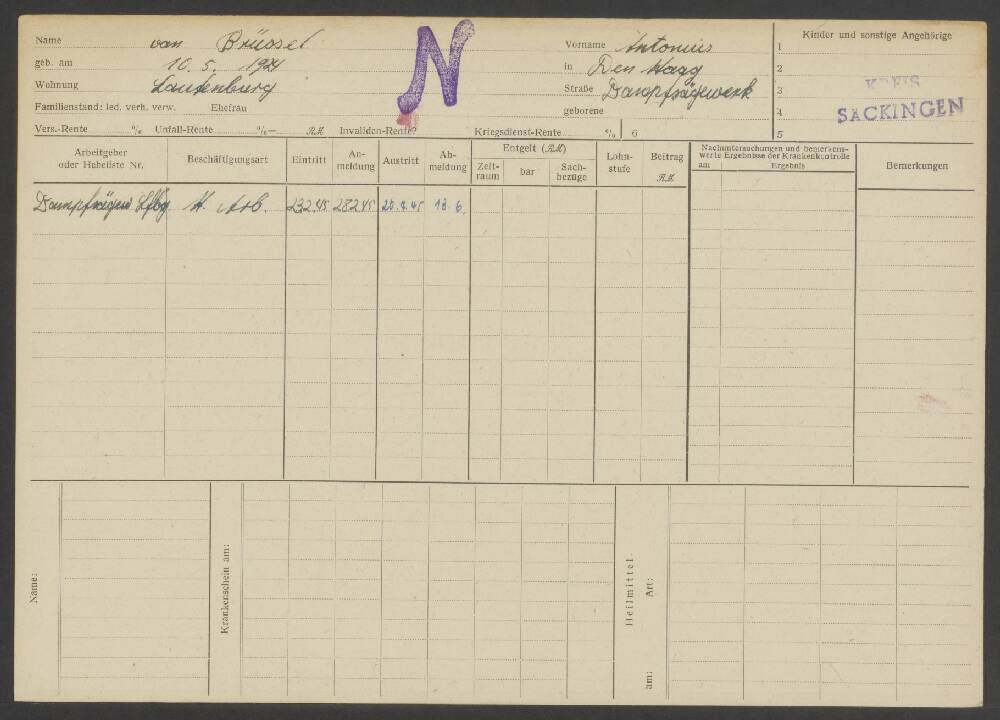 Name van Brüssel
N
Vorname Antonius
Kinder und sonstige Angehörige
geb. am 10. 5. 1924
in Den Haag
1
2
Wohnung Laufenburg
Straße Dampfsägewerk
3
KREIS
SÄCKINGEN
Familienstand: led. verh. verw. Ehefrau
geborene
4
Vers.-Rente % Unfall-Rente %— RM Invaliden-Rente? Kriegsdienst-Rente % 6
5
Arbeitgeber oder Hebeliste Nr.
Beschäftigungsart
Eintritt
An-
meldung
Austritt
Ab-
meldung
Entgelt (RM)
Zeit-
raum
bar
Sach-
bezüge
Lohn-
stufe
Beitrag
RM
Nachuntersuchungen und bemerkens-
werte Ergebnisse der Krankenkontrolle
am Ergebnis
Bemerkungen
Dampfsägew Lfbg H. Arb. 23.2.45 28.2.45 25.4.45 13.6.
Name:
Krankenschein am:
Heilmittel
Art:
am: